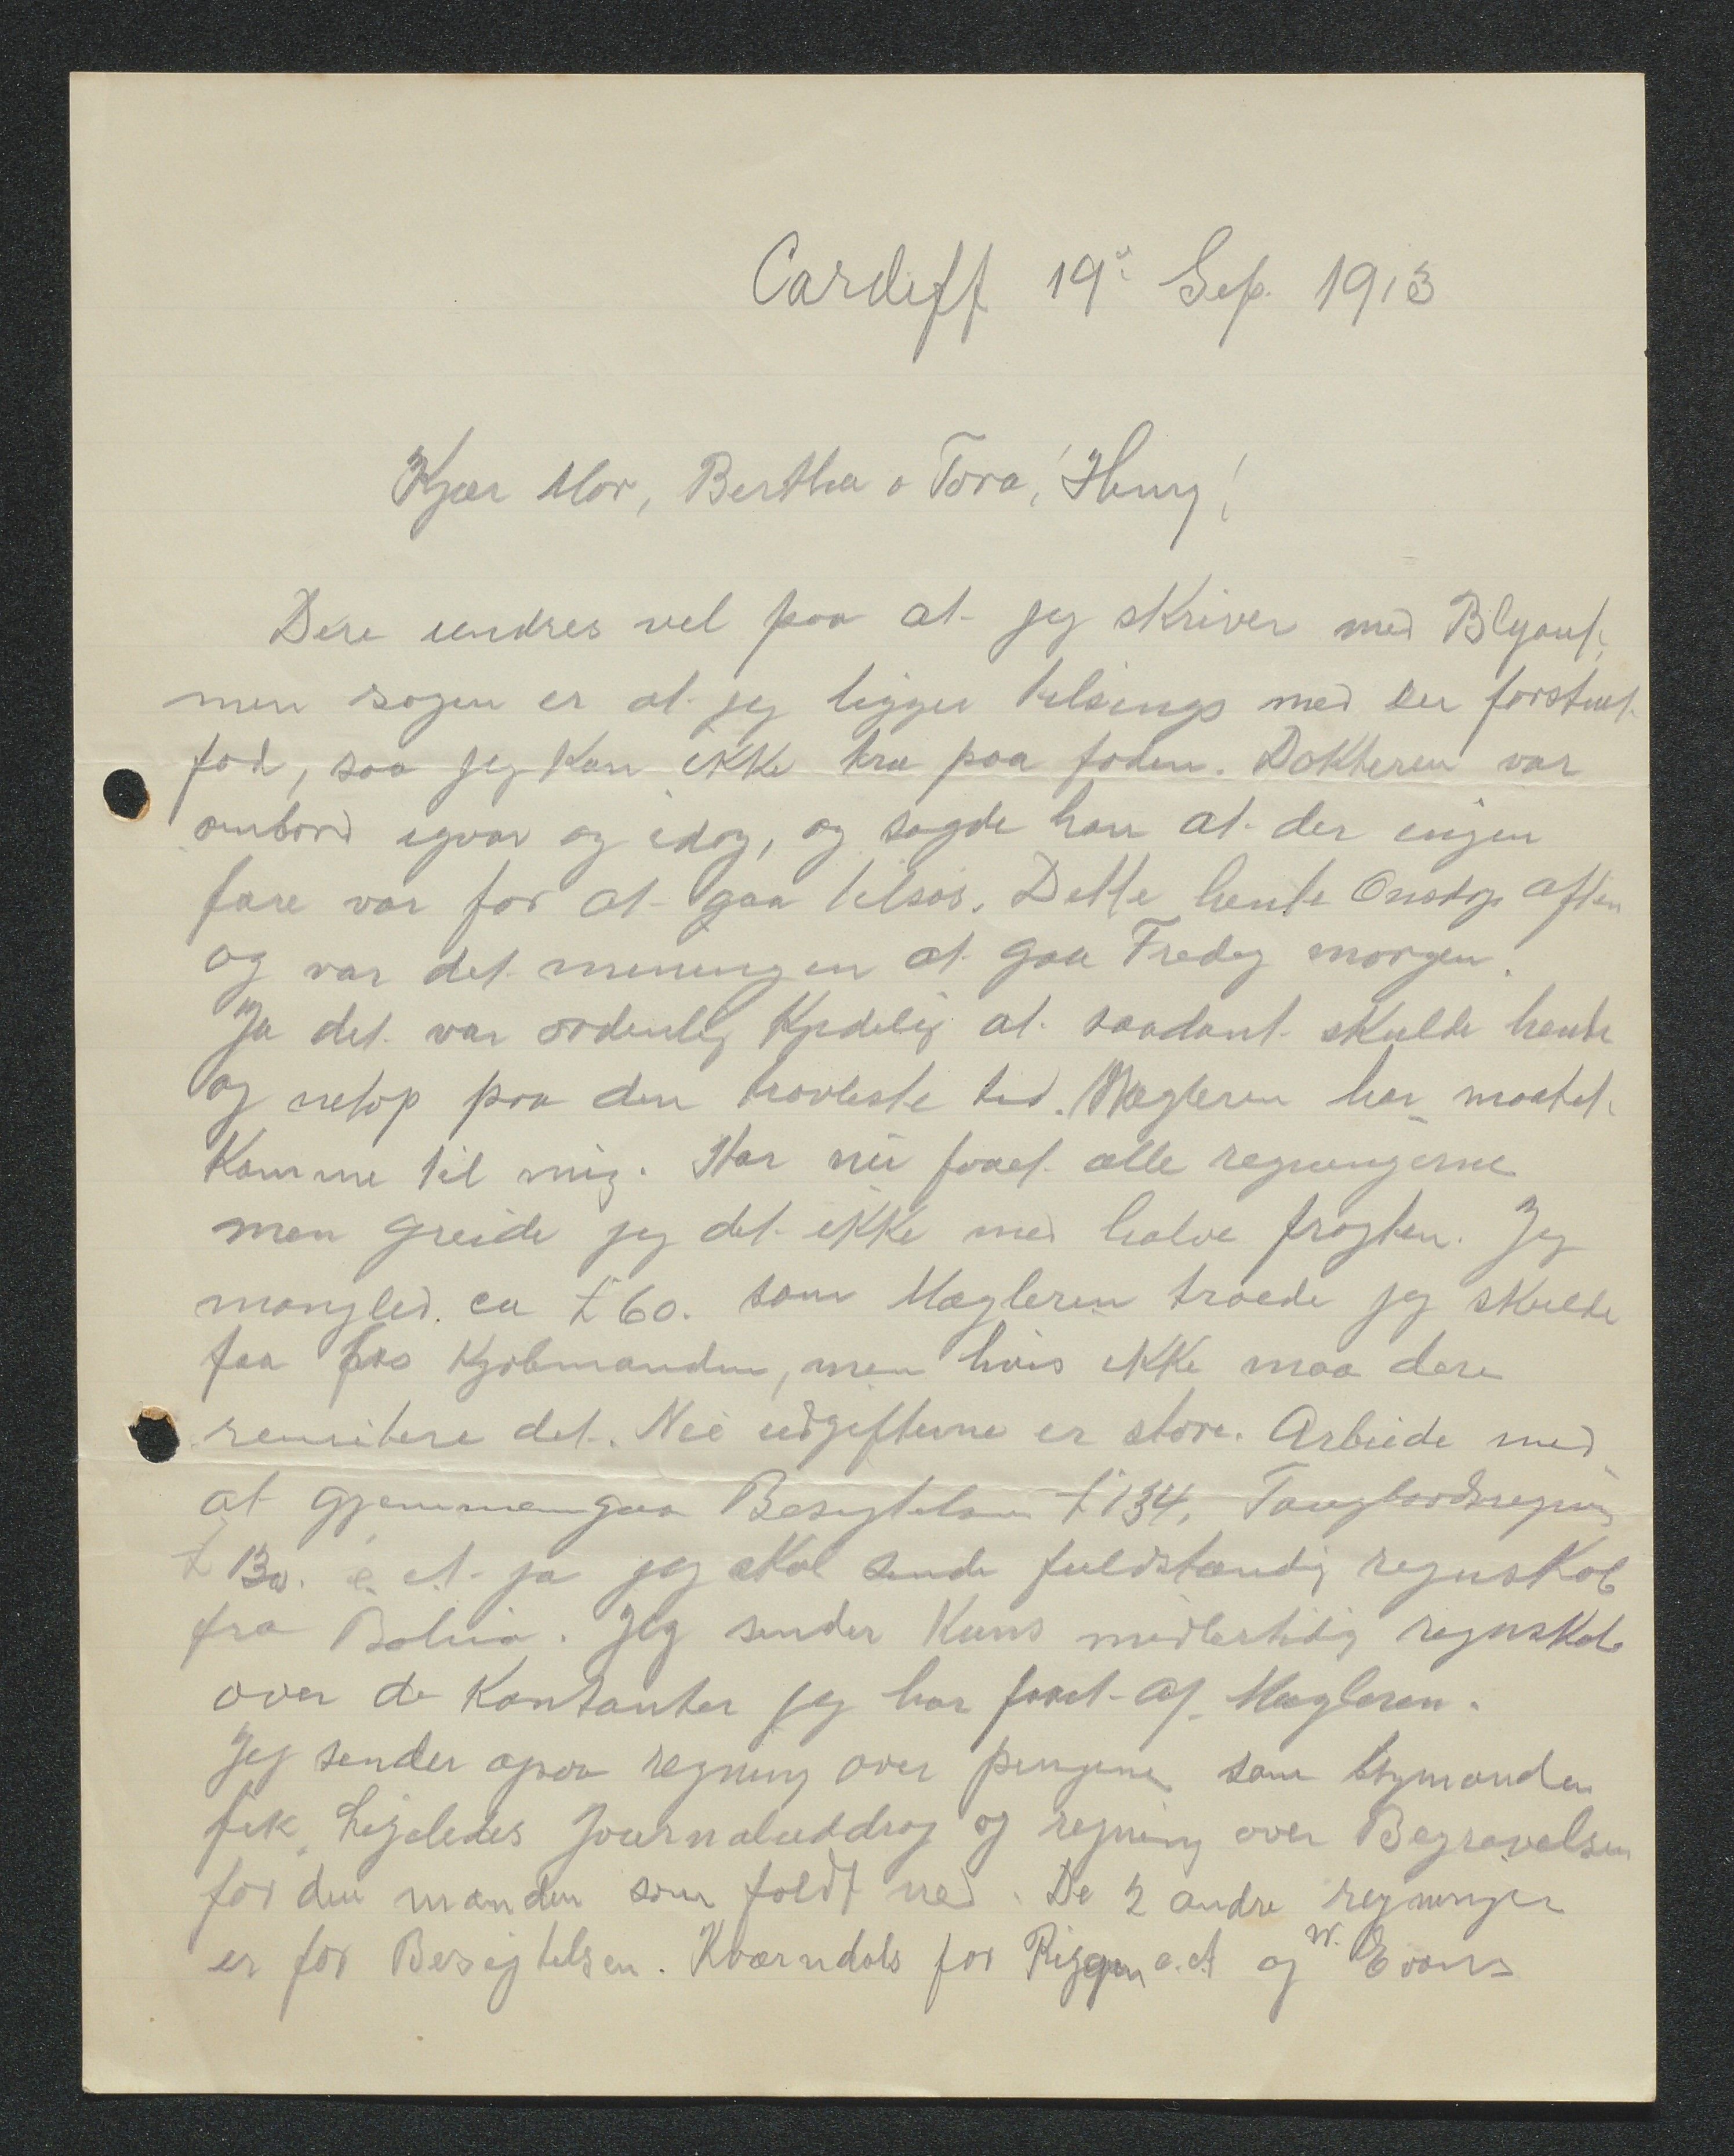 Cardiff 19de Sep. 1913
Kjær Mor, Bertha o Tora, Henry!
Dere undres vel paa at jeg skriver med Blyant,
men sagen er at jeg ligger tilsengs med en forstuet
fod, saa jeg kan ikke træ paa foden. Dokteren var
ombord igaar og idag, og sagde han at der ingen
fare var for at gaa tilsøs. Dette hente Onsdag aften
og var det meningen at gaa Fredag morgen.
Ja det var ordentlig kjedelig at saadant skulde hende
og netop paa den travleste tid. Mægleren har maatet
komme til mig. Har nu faaet alle regningerne
men greide jeg det ikke med halve fragten. Jeg
mangled ca £ 60. som Mægleren troede jeg skulde
faa hos Kjøbmanden, men hvis ikke maa dere
remitere det. Nei udgifterne er store. Arbeide med
at gjennemgaa Besigtelsen £ 134, Tougverksregning
£ 130. e. ct. ja jeg skal sende fuldstændig regnskab
fra Bahia. Jeg sender kuns midlertidig regnskab
over de Kontanter jeg har faaet af Mægleren.
Jeg sender ogsaa regning over pengene som Stymanden
fik, Ligeledes Journaluddrag og regning over Begravelsen
for den manden som faldt ned. De 2 andre regninger
er for Besigtelsen. Kværndals for Riggen e.ct og W. Evans